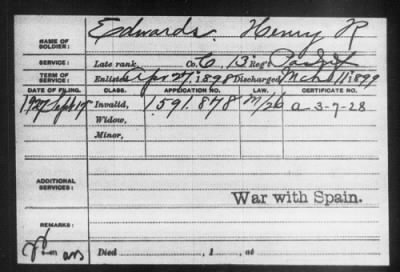 NAME OF SOLDIER: Edwards, Henry R
SERVICE: Late rank, Co. C, 13 Reg't Pa Inf
TERM OF SERVICE: Enlisted Apr 27, 1898 Discharged Mch 11 1899
DATE OF FILING. CLASS. APPLICATION NO. LAW. CERTIFICATE NO.
1927 Sept 17 Invalid, 1,591,878 M/26 a-3-7-28
Widow,
Minor,
ADDITIONAL SERVICES:
War with Spain.
REMARKS:
Died , 1 , at